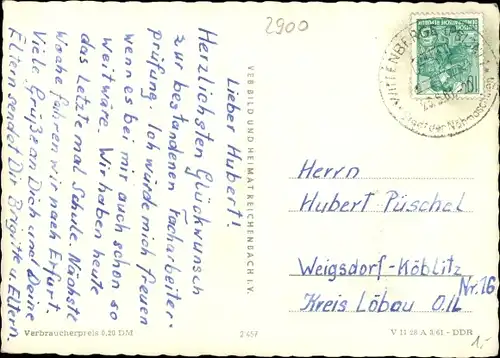 2900
Lieber Hubert!
Herzlichsten Glückwunsch
zur bestandenen Facharbeiter-
prüfung. Ich würde mich freuen
wenn es bei mir auch schon so
weit wäre. Wir haben heute
das Letzte mal Schule. Nächste
Woche fahren wir nach Erfurt.
Viele Grüße an Dich und Deine
Eltern sendet Dir Brigitte u. Eltern
VEB BILD UND HEIMAT REICHENBACH I. V.
WITTENBERGE
Stadt der Nähmaschinen
10
Herrn
Hubert Püschel
Weigsdorf-Köblitz
Nr. 16
Kreis Löbau O.L.
Verbraucherpreis 0,20 DM
2 457
V 11 28 A 3/61 - DDR
1,-